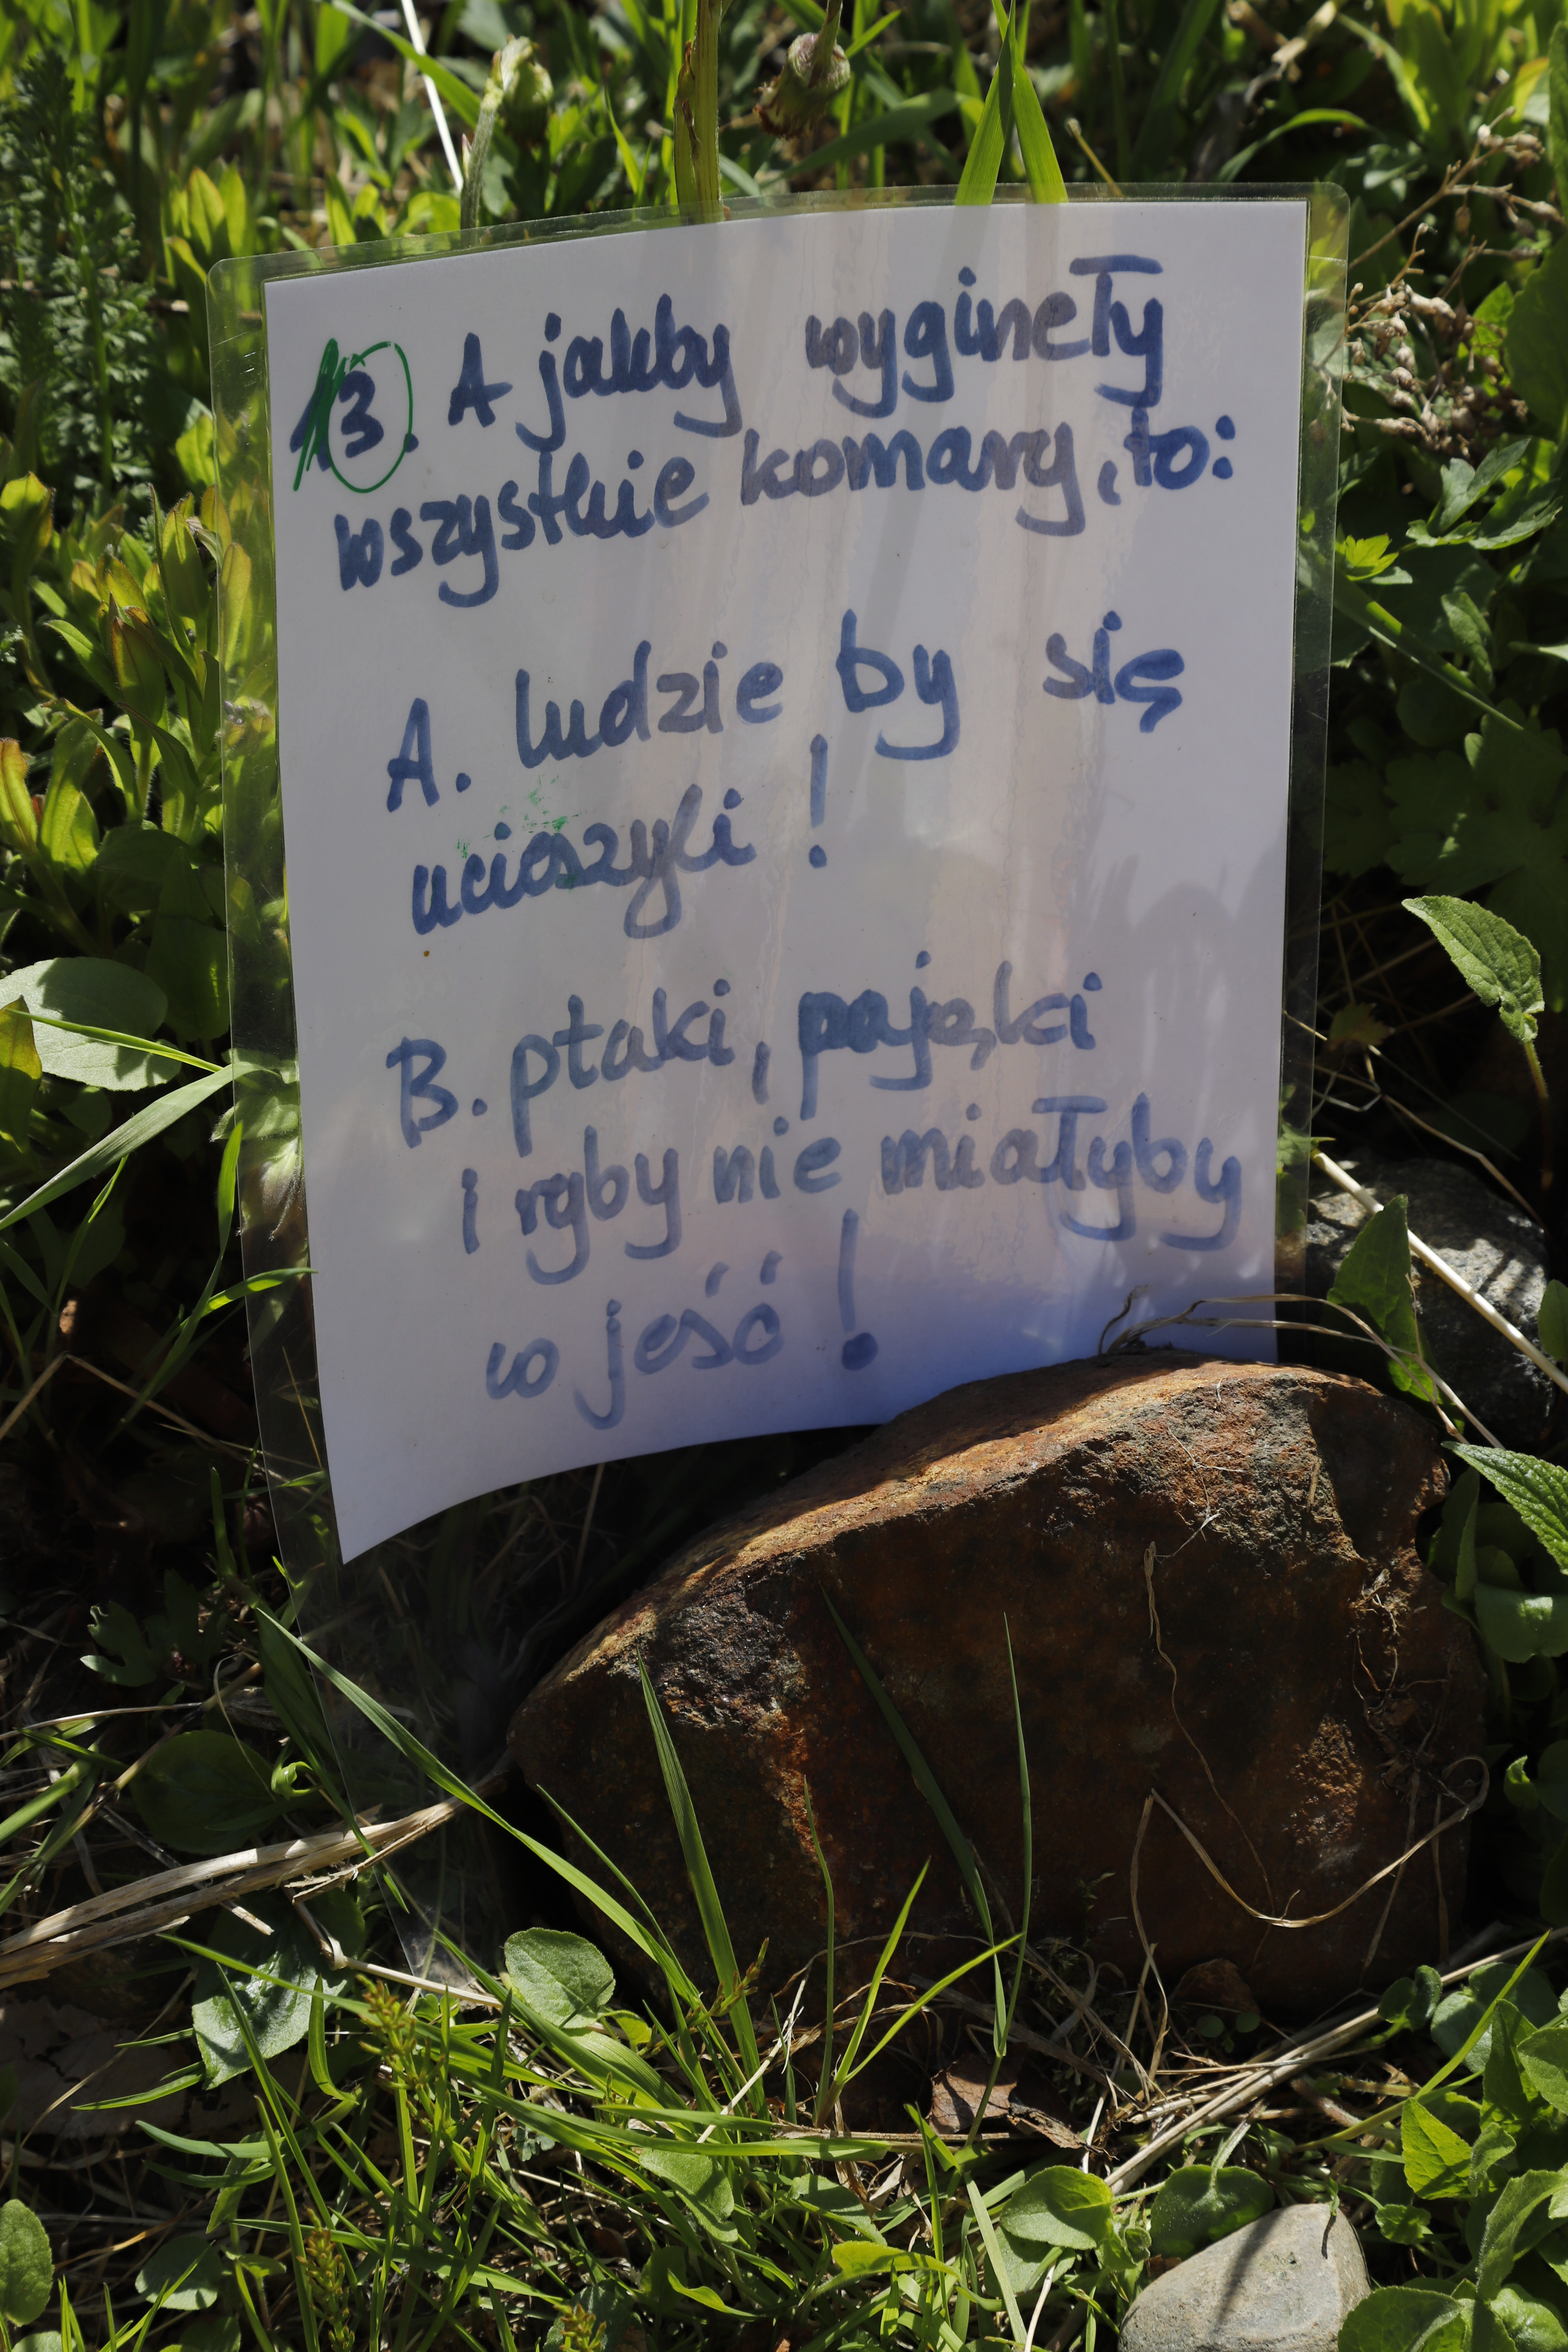 3. A jakby wyginęły
wszystkie komary, to:
A. ludzie by się
ucieszyli!
B. ptaki, pająki
i ryby nie miałyby
co jeść!